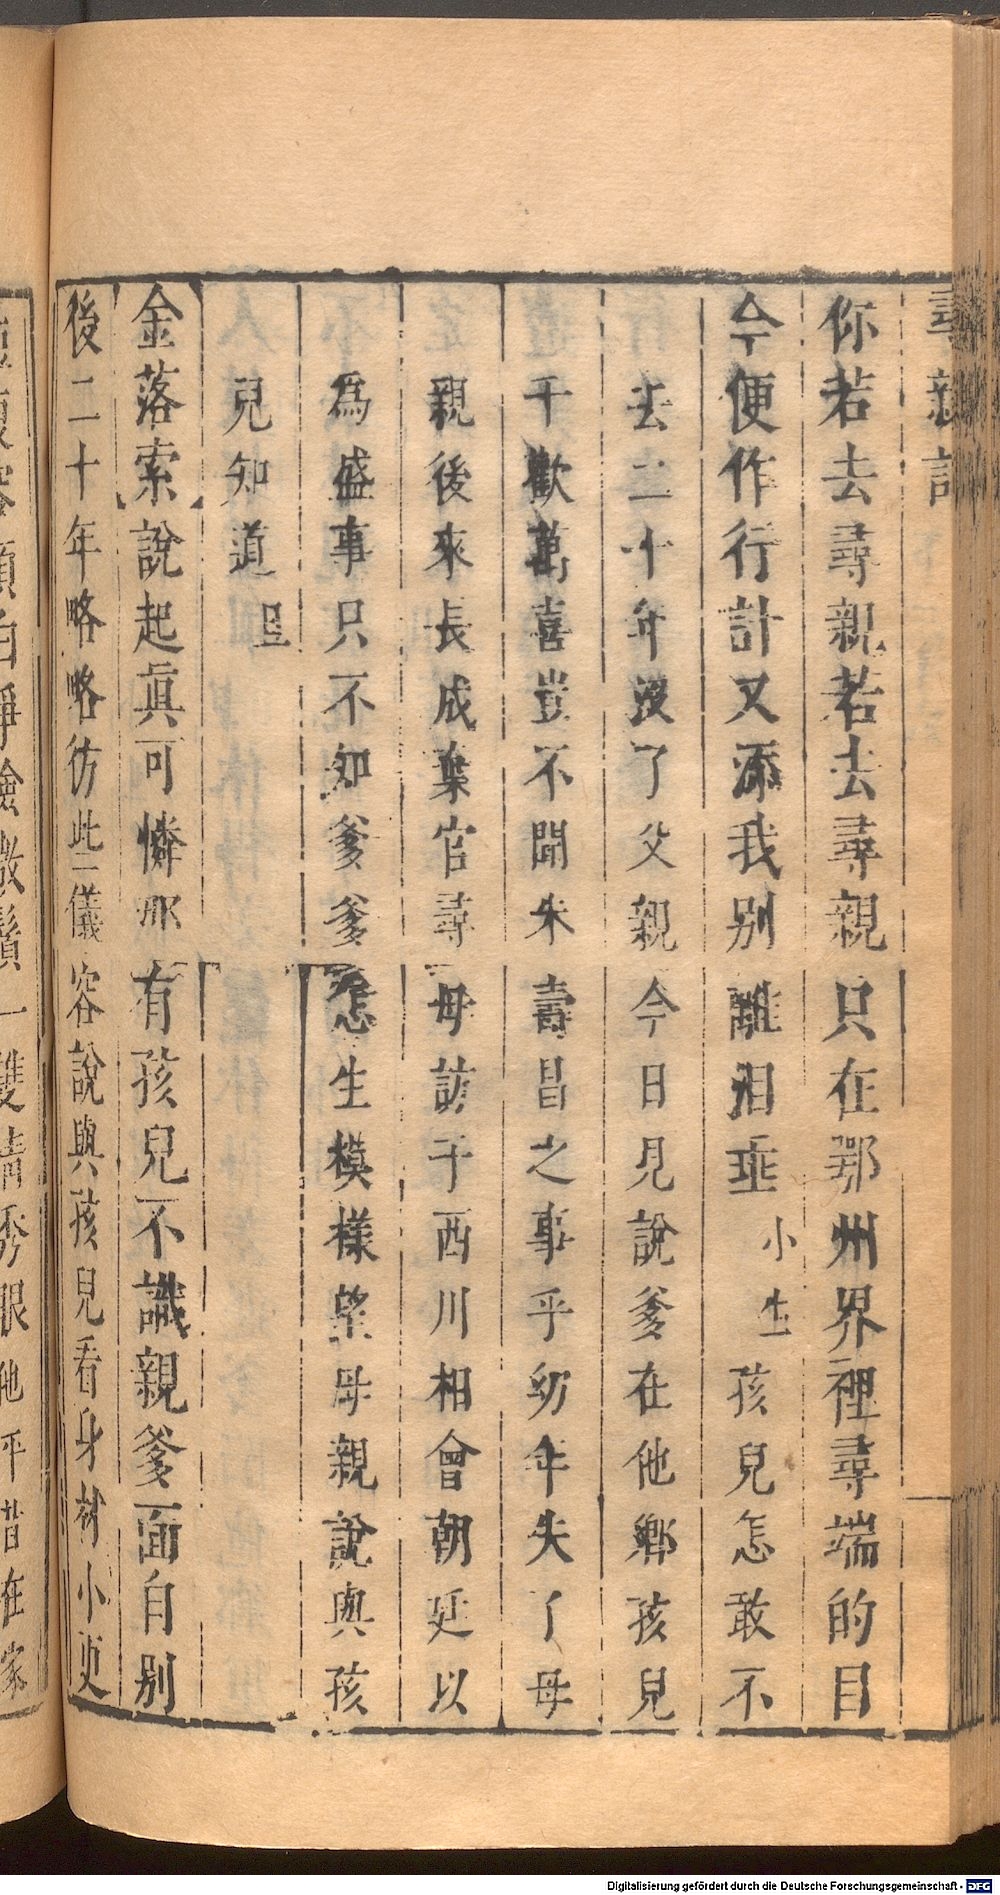 尋親記
你若去尋親若去尋親只在那州界裡尋端的目
今便作行計又添我别離泪垂小生孩兒怎敢不
去二十年沒了父親今日見說爹在他鄉孩兒
千歡萬喜豈不聞朱壽昌之事乎幼年失了母
親後來長成棄官尋母訪于西川相會朝廷以
為盛事只不知爹爹怎生模樣望母親說與孩
兒知道旦
金落索說起眞可憐那有孩兒不識親爹面自别
後二十年略略彷此二儀容說與孩兒看身材小更
臉微鬚一雙清秀眼他平昔在家
Digitalisierung gefördert durch die Deutsche Forschungsgemeinschaft - DFG